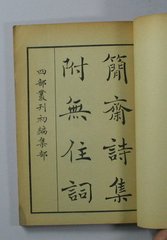 簡齋詩集
附無住詞
四部叢刊初編集部